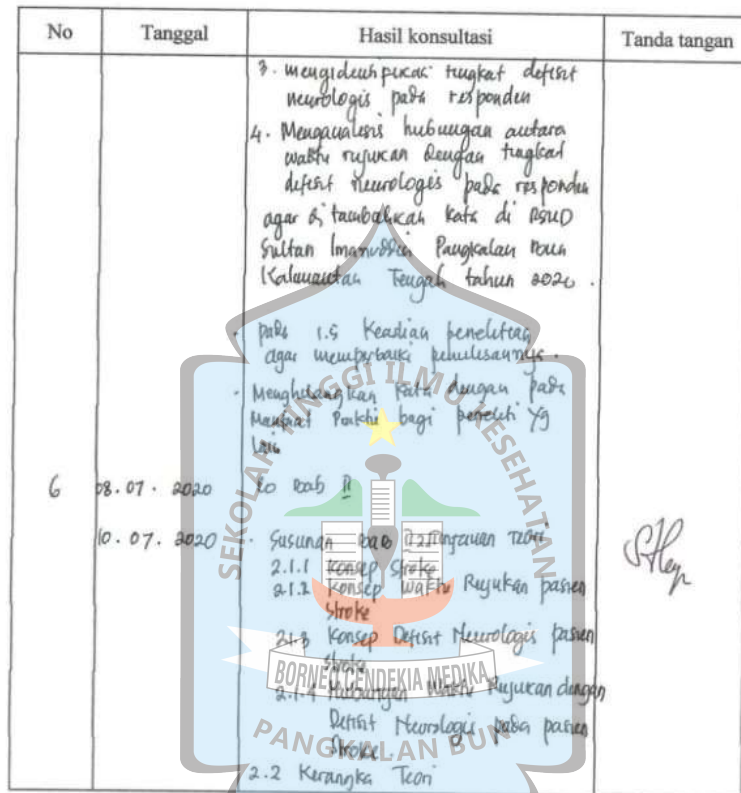 No Tanggal Hasil konsultasi Tanda tangan
3. mengidentifikasi tingkat defisit
neurologis pada responden
4. Menganalisis hubungan antara
waktu rujukan dengan tingkat
defisit neurologis pada responden
agar di tambahkan kata di RSUD
Sultan Imanuddin Pangkalan Bun
Kalimantan Tengah tahun 2020.
· pada 1.5 Keaslian penelitian
agar memperbaiki penulisannya.
· Menghilangkan kata dengan pada
Manfaat Praktis bagi peneliti yg
lain
6 08.07.2020 Bab II
10.07.2020 · Susunan bab 2 Tinjauan Teori
2.1.1 Konsep Stroke
2.1.2 Konsep Waktu Rujukan pasien
Stroke
2.1.3 Konsep Defisit Neurologis pasien
stroke
2.1.4 Hubungan Waktu Rujukan dengan
Defisit Neurologis pada pasien
Stroke.
2.2 Kerangka Teori
SEKOLAH TINGGI ILMU KESEHATAN
BORNEO CENDEKIA MEDIKA
PANGKALAN BUN